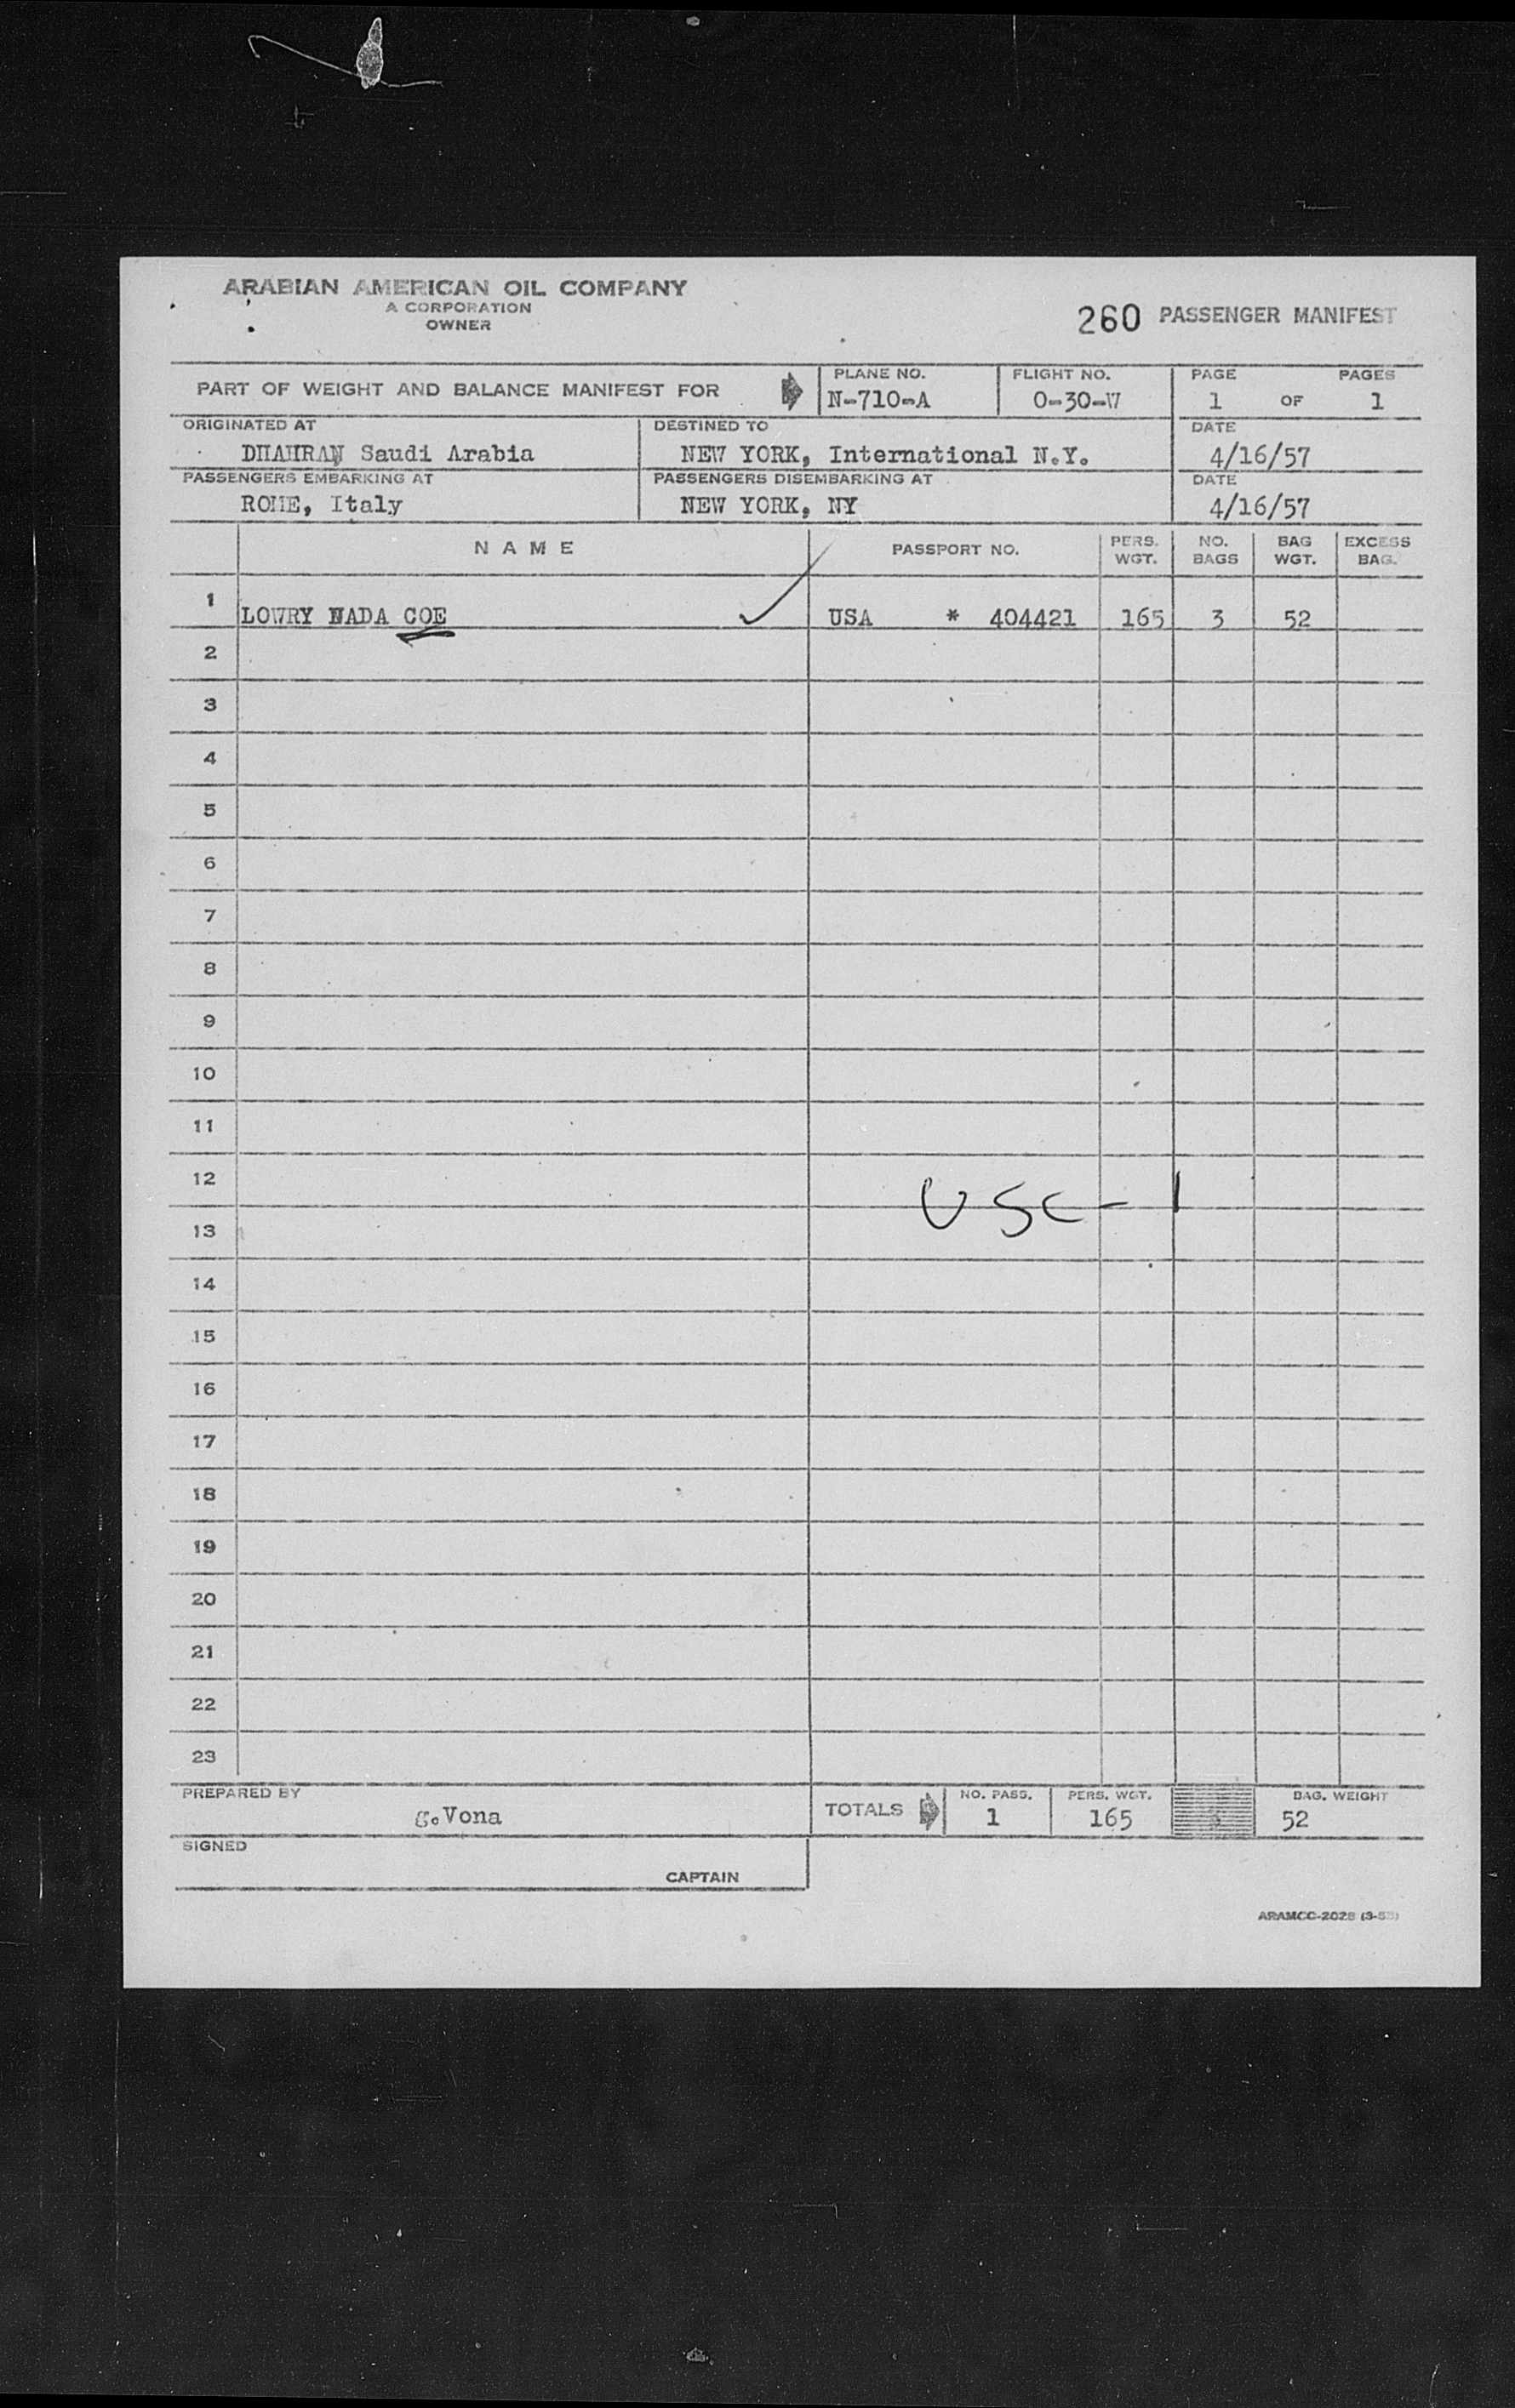 ARABIAN AMERICAN OIL COMPANY
A CORPORATION
OWNER
260 PASSENGER MANIFEST
PART OF WEIGHT AND BALANCE MANIFEST FOR
PLANE NO.
N-710-A
FLIGHT NO.
0-30-W
PAGE 1 OF PAGES 1
ORIGINATED AT
DHAHRAN Saudi Arabia
DESTINED TO
NEW YORK, International N.Y.
DATE
4/16/57
PASSENGERS EMBARKING AT
ROME, Italy
PASSENGERS DISEMBARKING AT
NEW YORK, NY
DATE
4/16/57
NAME PASSPORT NO. PERS. WGT. NO. BAGS BAG WGT. EXCESS BAG.
1 LOWRY NADA COE USA * 404421 165 3 52
2
3
4
5
6
7
8
9
10
11
12
USC-1
13
14
15
16
17
18
19
20
21
22
23
PREPARED BY
g.Vona
TOTALS
NO. PASS.
1
PERS. WGT.
165
BAG. WEIGHT
52
SIGNED
CAPTAIN